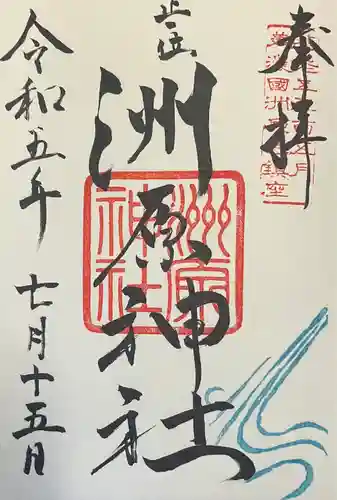 奉拝
洲原神社
令和五年
七月十五日
洲原神社